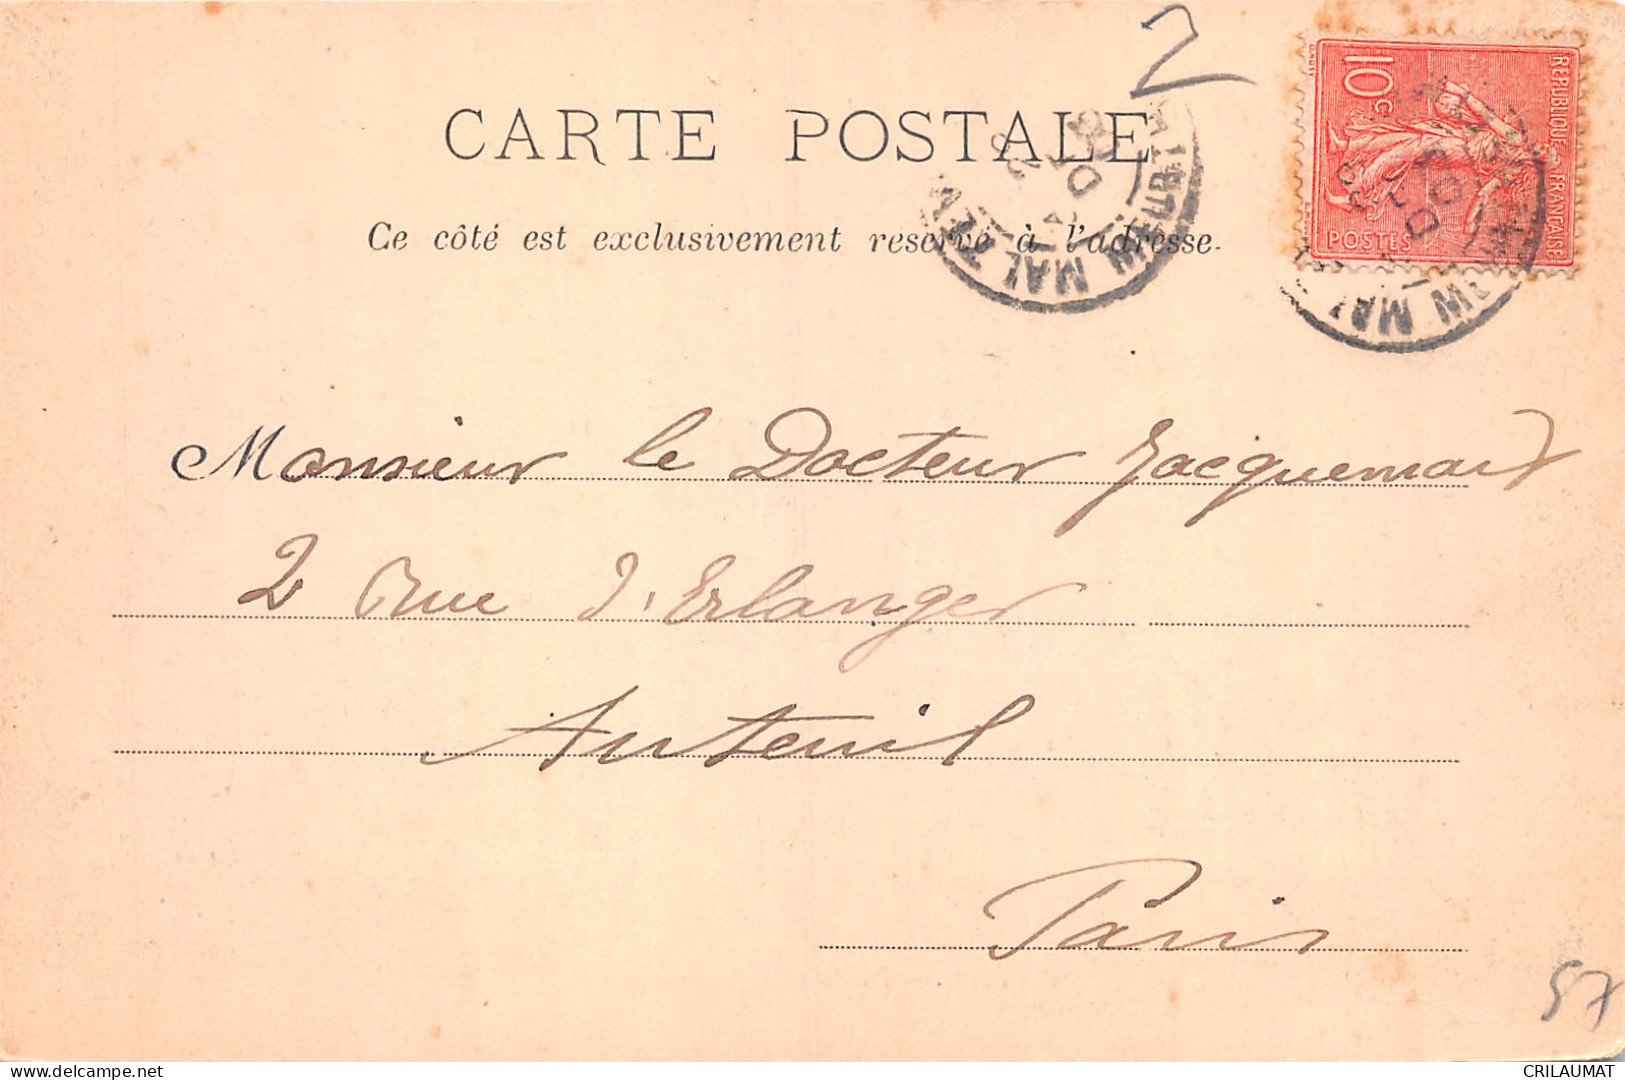 2
CARTE POSTALE
Ce côté est exclusivement reservé à l'adresse.
REPUBLIQUE FRANÇAISE
10c
POSTES
Monsieur le Docteur Jacquemart
2 Rue d'Erlanger
Auteuil
Paris
57
delcampe.net
CRILAUMAT